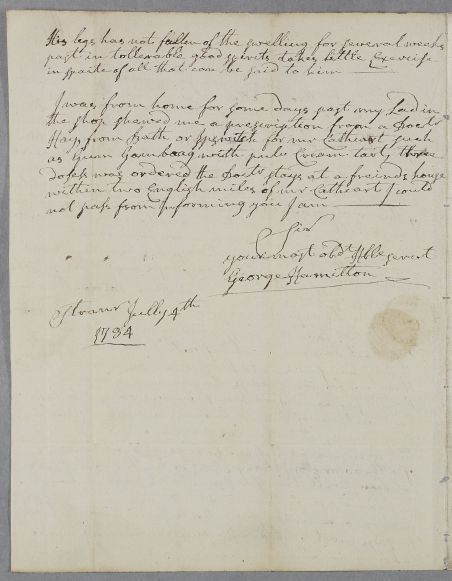 His legs has not fallen of the swelling for several weeks
past in tollerable good spirits takes little Exercise
in spite of all that can be said to him
I was from home for some days past my Lad in
the shop shewed me a prescription from a Doctr
Hay from Bath or Ipswitch for mr Cathcart such
as Gum Gambaag with pulv Cream tart, three
doses was ordered the Doctr stays at a freinds house
within two English miles of mr Cathcart I could
not pass from Informing you I am
Sir
your most obdt Hble servt
George Hamilton
Stranr Jully 4th
1784